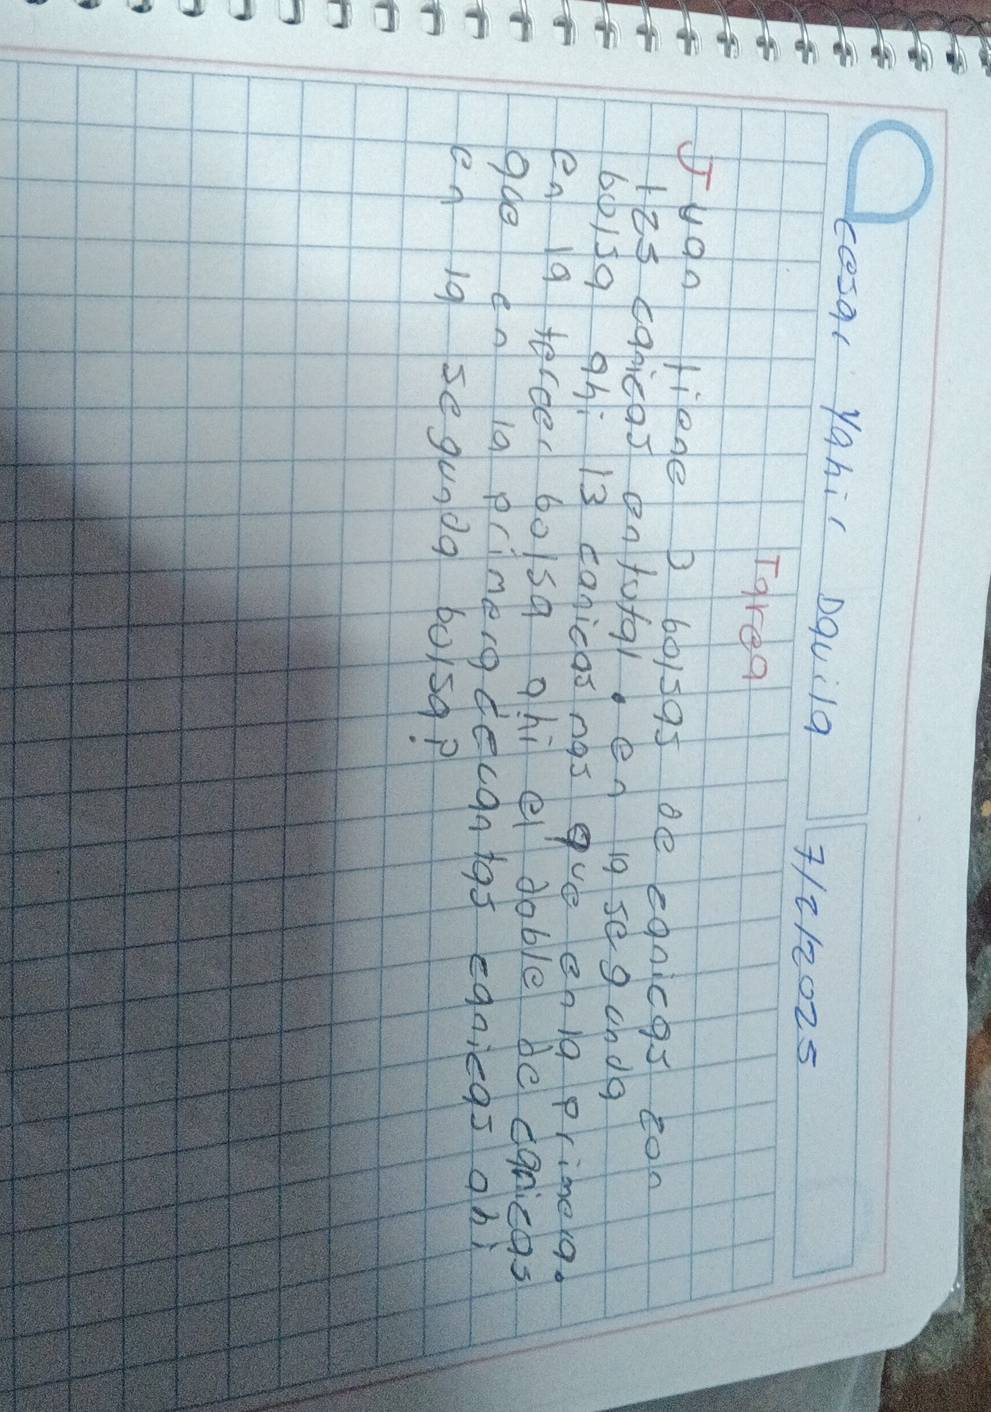 cesar Yahir Davila 7/2/2025
Tarea
Juan tiene 3 bolsas de canicas con
125 canicas en total. en la segunda
bolsa ahi 13 canicas nas que en la primera.
en la tercer bolsa ahi el doble de canicas
que en la primera cuantas canicas ahi
en la segunda bolsa?